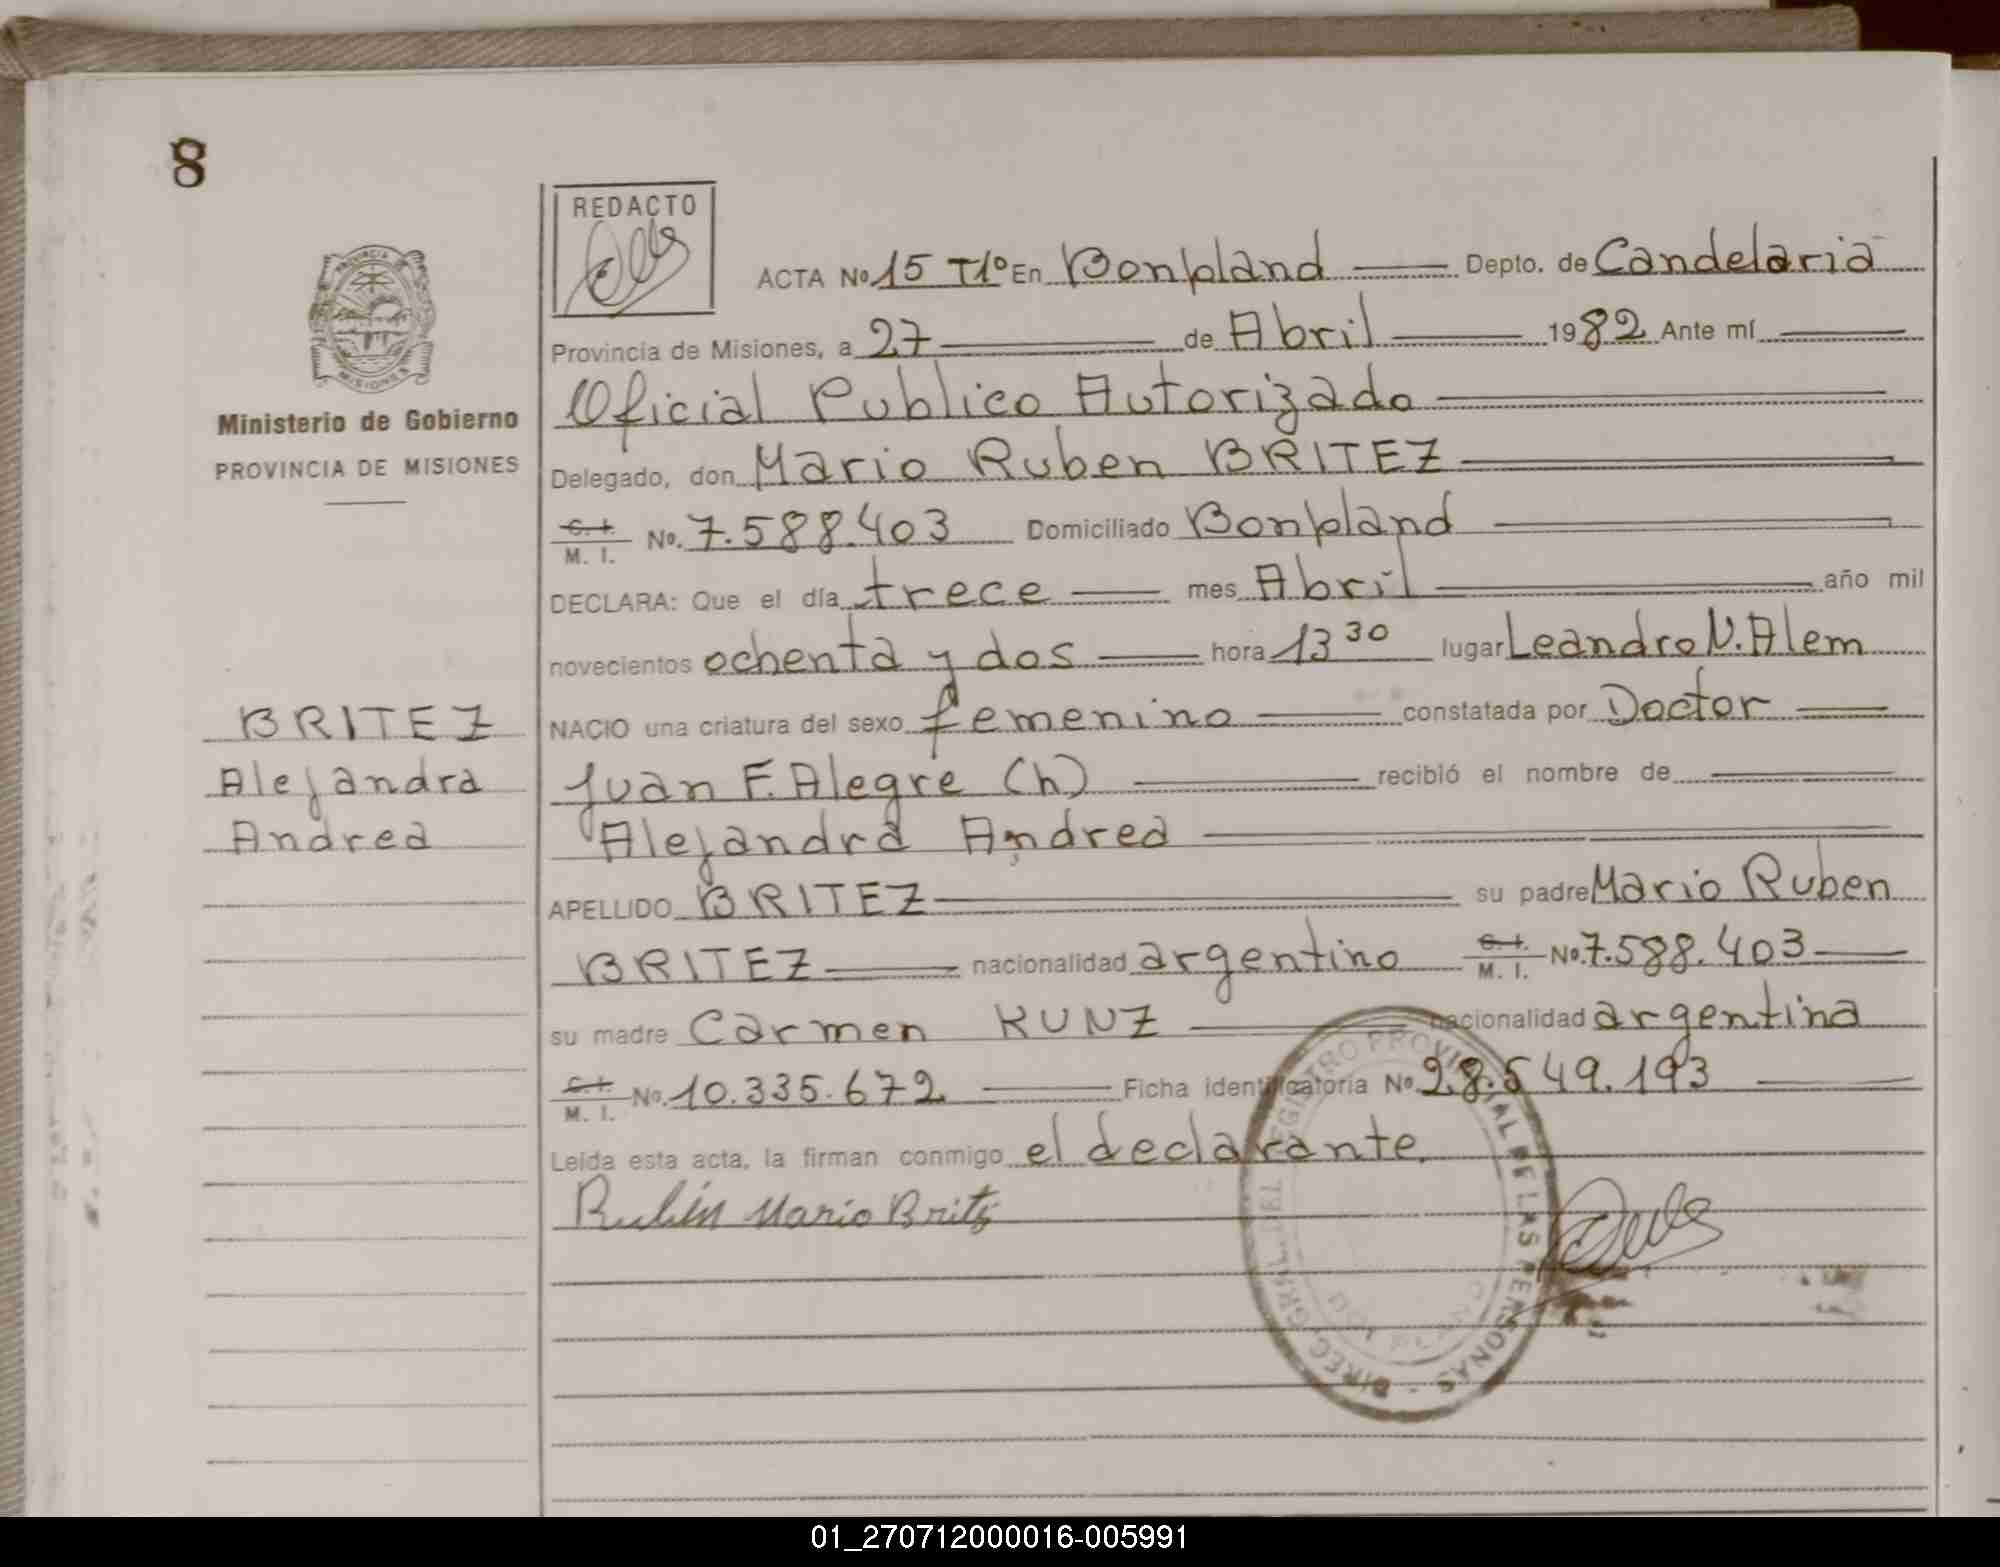 8
REDACTO
PROVINCIA DE
MISIONES
Ministerio de Gobierno
PROVINCIA DE MISIONES
BRITEZ
Alejandra
Andrea
ACTA No 15 T1º En Bonpland Depto. de Candelaria
Provincia de Misiones, a 27 de Abril 1982 Ante mí
Oficial Publico Autorizado
Delegado, don Mario Ruben BRITEZ
C. I. / M. I. No. 7.588.403 Domiciliado Bonpland
DECLARA: Que el día trece mes Abril año mil
novecientos ochenta y dos hora 13 30 lugar Leandro N. Alem
NACIO una criatura del sexo femenino constatada por Doctor
Juan F. Alegre (h) recibió el nombre de
Alejandra Andrea
APELLIDO BRITEZ su padre Mario Ruben
BRITEZ nacionalidad argentino C. I. / M. I. No 7.588.403
su madre Carmen KUNZ nacionalidad argentina
C. I. / M. I. No. 10.335.672 Ficha identificatoria No 28.549.193
Leída esta acta, la firman conmigo el declarante.
Rubén Mario Britez
DIREC. GRAL. DEL REGISTRO PROVINCIAL DE LAS PERSONAS
BONPLAND
01_270712000016-005991